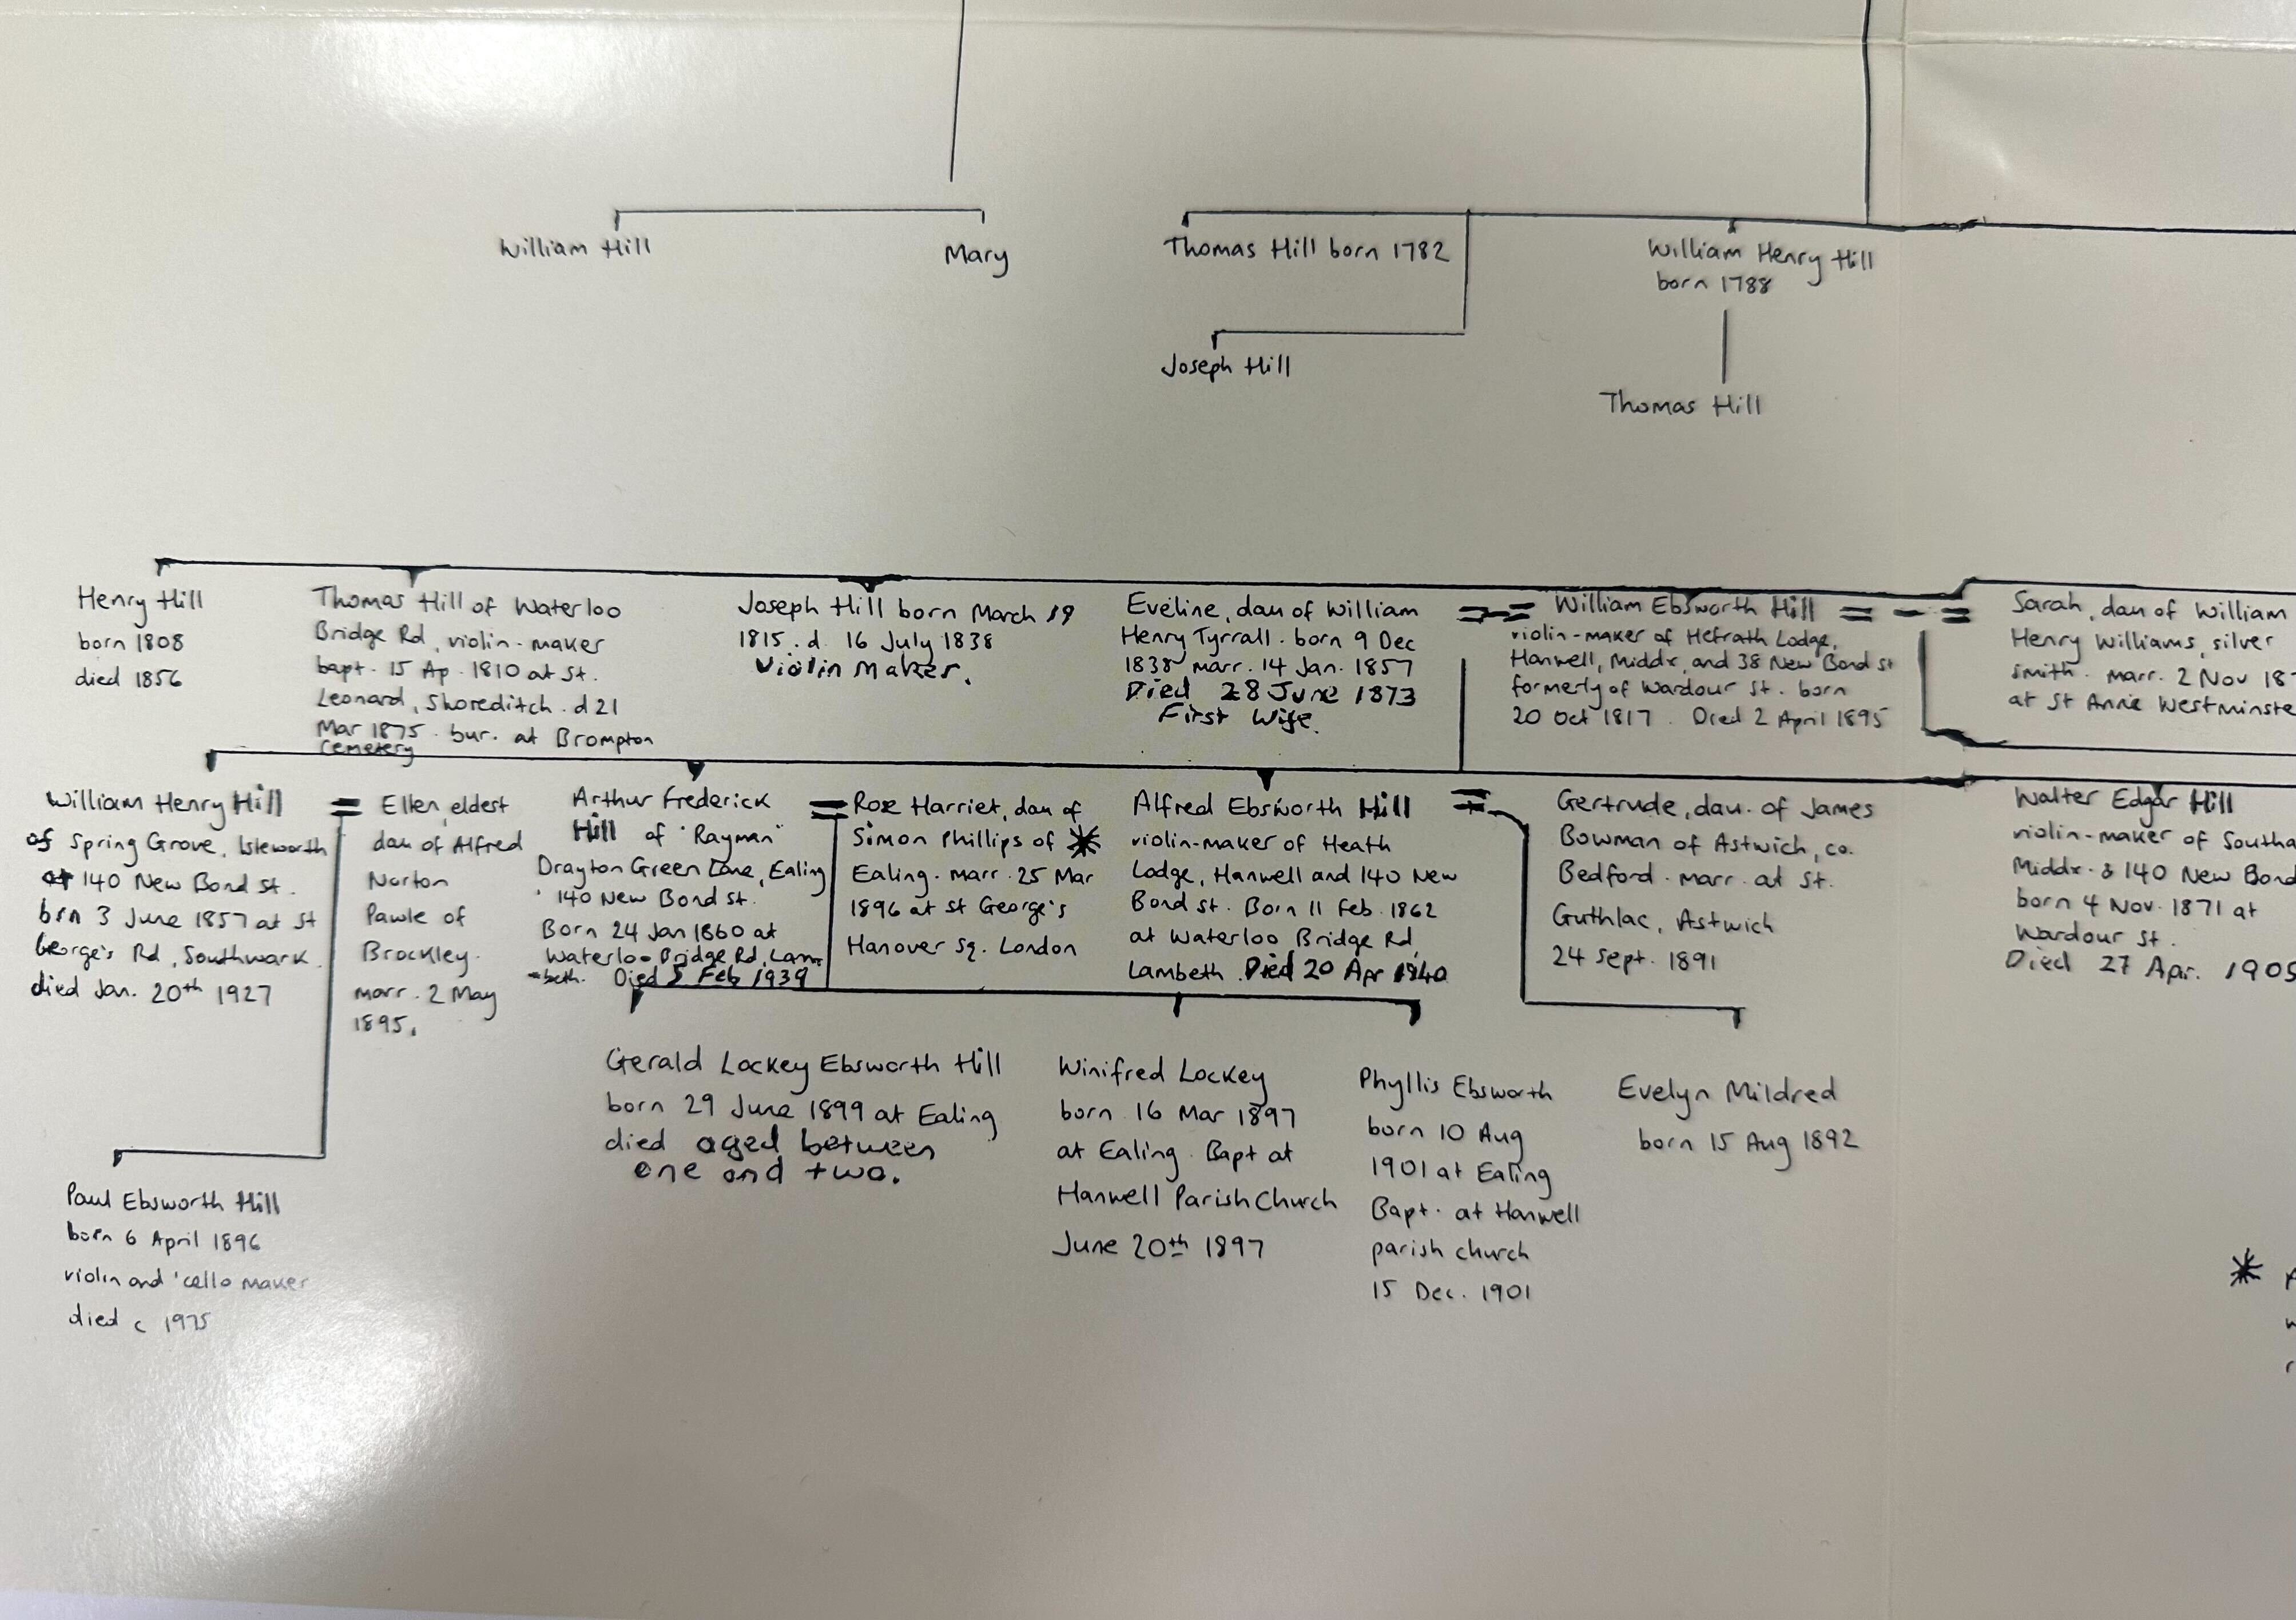 William Hill
Mary
Thomas Hill born 1782
William Henry Hill
born 1788
Joseph Hill
Thomas Hill
Henry Hill
born 1808
died 1856
Thomas Hill of Waterloo
Bridge Rd, violin-maker
bapt. 15 Ap. 1810 at St.
Leonard, Shoreditch. d 21
Mar 1875. bur. at Brompton
cemetery
Joseph Hill born March 19
1815. d. 16 July 1838
Violin Maker.
Eveline, dau of William
Henry Tyrrall. born 9 Dec
1838 marr. 14 Jan. 1857
Died 28 June 1873
First Wife.
= =
William Ebsworth Hill
violin-maker of Heath Lodge,
Hanwell, Middx, and 38 New Bond st
formerly of Wardour St. born
20 Oct 1817. Died 2 April 1895
= - =
Sarah, dau of William
Henry Williams, silver
smith. marr. 2 Nov 18
at St Anne Westminste
William Henry Hill
of Spring Grove, Isleworth
at 140 New Bond St.
brn 3 June 1857 at St
George's Rd, Southwark.
died Jan. 20th 1927
=
Ellen, eldest
dau of Alfred
Norton
Pawle of
Brockley.
marr. 2 May
1895.
Arthur Frederick
Hill of "Rayman"
Drayton Green Lane, Ealing
140 New Bond St.
Born 24 Jan 1860 at
Waterloo Bridge Rd, Lam
-beth. Died 5 Feb 1939
=
Rose Harriet, dau of
Simon Phillips of *
Ealing. marr. 25 Mar
1896 at St George's
Hanover Sq. London
Alfred Ebsworth Hill
violin-maker of Heath
Lodge, Hanwell and 140 New
Bond St. Born 11 Feb. 1862
at Waterloo Bridge Rd,
Lambeth. Died 20 Apr 1940
=
Gertrude, dau. of James
Bowman of Astwich, co.
Bedford. marr. at St.
Guthlac, Astwich
24 Sept. 1891
Walter Edgar Hill
violin-maker of Southa
Middx. & 140 New Bond
born 4 Nov. 1871 at
Wardour St.
Died 27 Apr. 1905
Gerald Lockey Ebsworth Hill
born 29 June 1899 at Ealing
died aged between
one and two.
Winifred Lockey
born 16 Mar 1897
at Ealing. Bapt at
Hanwell Parish Church
June 20th 1897
Phyllis Ebsworth
born 10 Aug
1901 at Ealing
Bapt. at Hanwell
parish church
15 Dec. 1901
Evelyn Mildred
born 15 Aug 1892
Paul Ebsworth Hill
born 6 April 1896
violin and 'cello maker
died c 1975
*